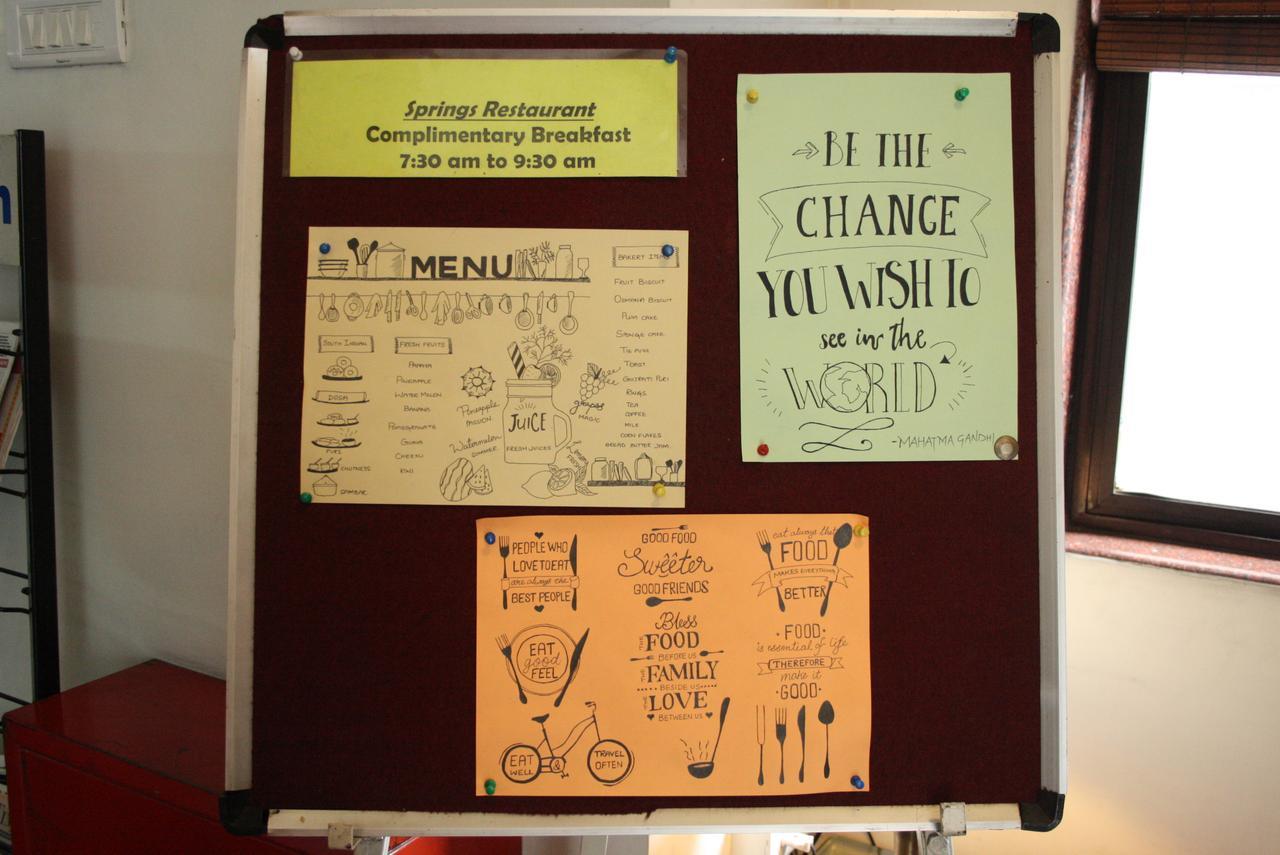 Springs Restaurant
Complimentary Breakfast
7:30 am to 9:30 am
BE THE
CHANGE
YOU WISH TO
see in the
WORLD
-MAHATMA GANDHI
MENU
SOUTH INDIAN
DOSA
PURI
CHUTNEYS
SAMBAR
FRESH FRUITS
PAPAYA
PINEAPPLE
WATER MELON
BANANA
POMEGRANATE
GUAVA
CHEEKU
KIWI
Pineapple
PASSION
Watermelon
SUMMER
JUICE
FRESH JUICES
grapes
MAGIC
BAKERY ITEMS
FRUIT BISCUIT
OSMANIA BISCUIT
PLUM CAKE
SPONGE CAKE
TOAST
GUJRATI PURI
RINGS
TEA
COFFEE
MILK
CORN FLAKES
BREAD BUTTER JAM
PEOPLE WHO
LOVE TO EAT
are always the
BEST PEOPLE
GOOD FOOD
Sweeter
GOOD FRIENDS
eat always that
FOOD
MAKES EVERYTHING
BETTER
EAT
good
FEEL
Bless
THE FOOD
BEFORE US
THE FAMILY
BESIDE US
THE LOVE
BETWEEN US
FOOD
is essential of life
THEREFORE
make it
GOOD
EAT
WELL
&
TRAVEL
OFTEN